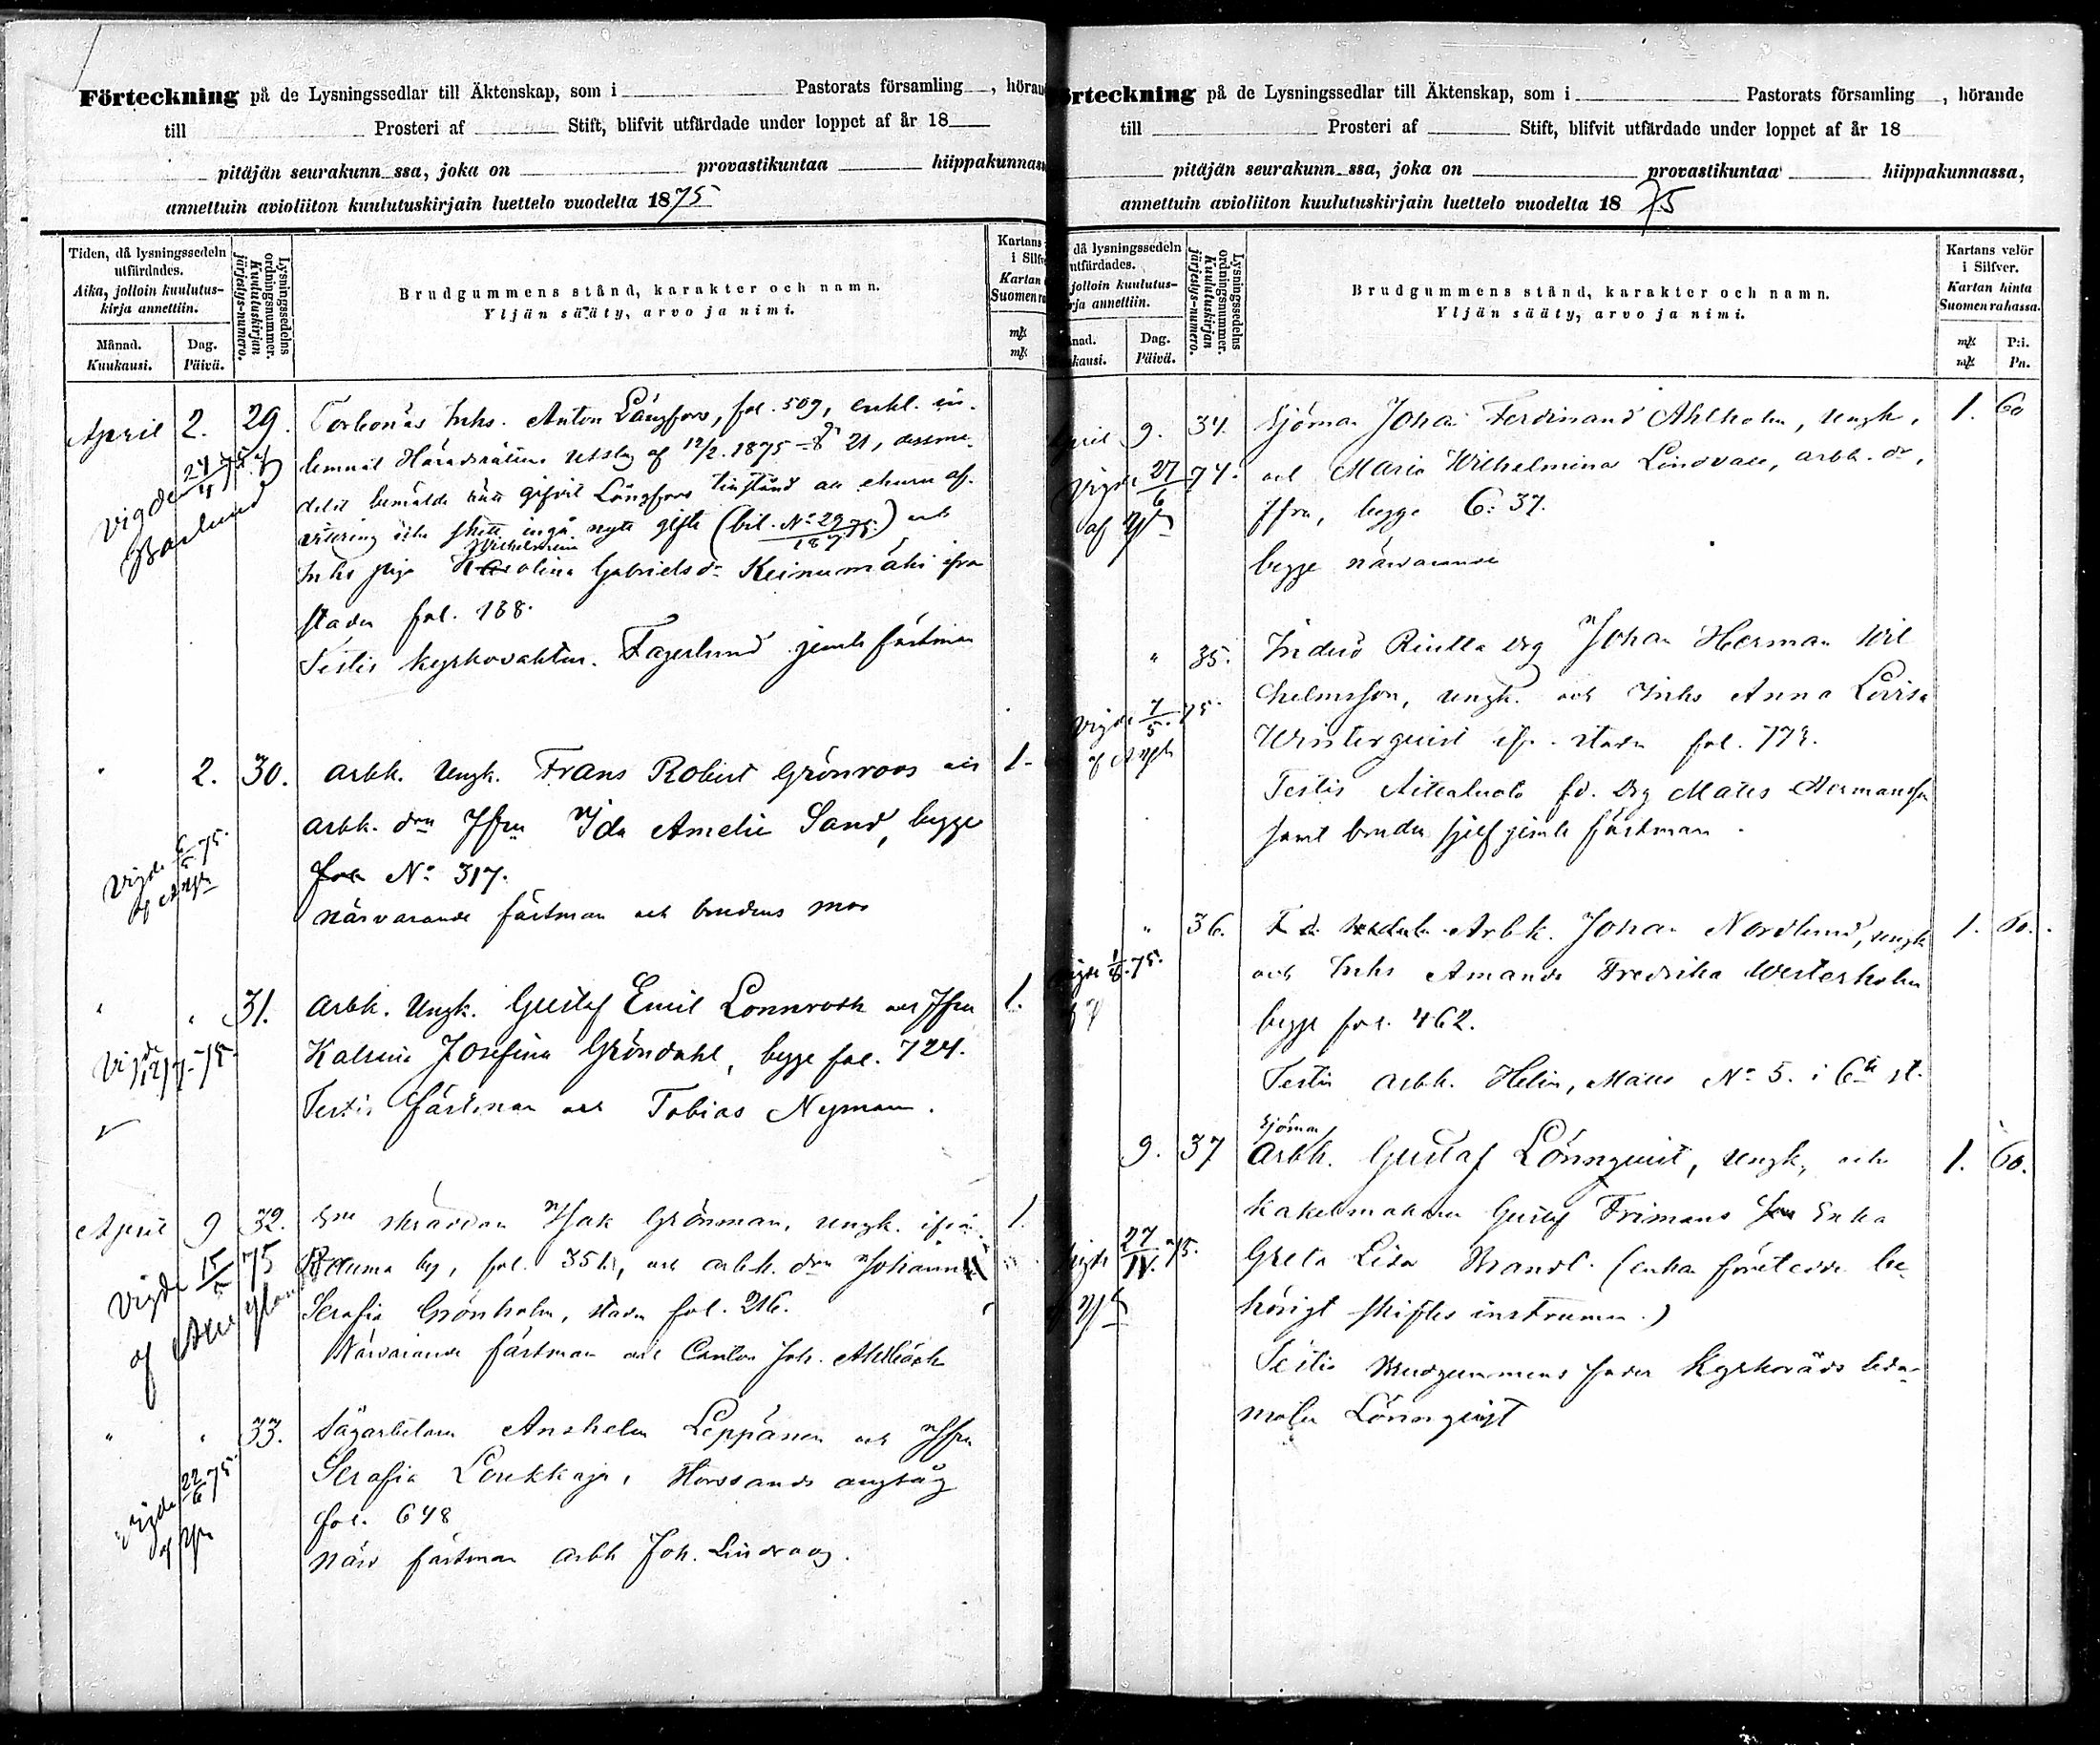 Förteckning på de Lysningssedlar till Äktenskap, som i Pastorats församling , höran
till Prosteri af Stift, blifvit utfärdade under loppet af år 18
pitäjän seurakunn ssa, joka on provastikuntaa hiippakunnass
annettuin avioliiton kuulutuskirjain luettelo vuodelta 1875
Tiden, då lysningssedeln utfärdades.
Aika, jolloin kuulutus-
kirja annettiin.
Månad.
Kuukausi.
Dag.
Päivä.
Lysningssedelns ordningsnummer.
Kuulutuskirjan järjestys-numero.
Brudgummens stånd, karakter och namn.
Yljän sääty, arvo ja nimi.
Kartans
i Silfv
Kartan
Suomen ra
mk
mk
April 2. 29. Torbonäs Inhs. Anton Långfors, fol. 509, enl. in-
lemnat Häradsrättens Utslag af 12/2. 1875 § 21,
vigde 24/4 75 af
Barlund
(bil. No 29/187 75.) och
Wilhelmina
Inhs piga Karolina Gabrielsdr Keinumäki ifrån
staden fol. 188.
Testis kyrkovaktm. Fagerlund jemte fästman
" 2. 30. Arbk. Ungk. Frans Robert Grönroos och 1-
arbk. drn Jfru Ida Amelie Sand, begge
fol No 317.
Vigde 6/5 75.
närvarande fästman och brudens mor
" " 31. Arbk. Ungk. Gustaf Emil Lönnroth och Jfru 1.
Vigde 12/7-75.
Kalsine Josefina Gröndahl, begge fol. 724.
Testis fästman och Tobias Nyman.
April 9 32. skräddan Isak Grönman, ungk. ifrån 1.
Vigde 15/5 75
Rauma by, fol. 351, och arbk. drn Johanna
Serafia Grönholm, staden fol. 216.
Närvarande fästman och Cantor Joh. Ahlbäck
" " 33. Sågarbetaren Anshelm Leppänen och Jfru
Serafia Loukkaja, Hovsands angsåg
Vigde 22/6 75.
fol. 648
närv fästman arbk Joh. Lindroos.
örteckning på de Lysningssedlar till Äktenskap, som i Pastorats församling , hörande
till Prosteri af Stift, blifvit utfärdade under loppet af år 18
pitäjän seurakunn ssa, joka on provastikuntaa hiippakunnassa,
annettuin avioliiton kuulutuskirjain luettelo vuodelta 1875
då lysningssedeln
utfärdades.
jolloin kuulutus-
rja annettiin.
nad.
kausi.
Dag.
Päivä.
Lysningssedelns ordningsnummer.
Kuulutuskirjan järjestys-numero.
Brudgummens stånd, karakter och namn.
Yljän sääty, arvo ja nimi.
Kartans valör
i Silfver.
Kartan hinta
Suomen rahassa.
mk P:i.
mk Pn.
April 9. 34. Sjöman Johan Ferdinand Ahlholm, ungk. 1. 60
Vigde 27/6 74. och Maria Wilhelmina Lindvall, arbk. dr,
Jfru, begge 6: 37.
begge närvarande
" 35. Inderö Rintta Drg Johan Herman Wil
helmsson, ungk. och Inhs Anna Lovisa
Vigde 7/5. 75.
Winterquist ifr. staden fol. 773.
Testis Aitaluoto fd. Drg Matts Hermansson
samt bruden sjelf jemte fästman.
" 36. Arbk. Johan Nordlund, ungk 1. 60.
Vigde 1/8. 75.
och Inhs Amanda Fredrika Westerholm
begge fol. 462.
Testis arbk. Helin, Matts No 5. i 6te st.
Sjöman
9. 37 Arbk. Gustaf Lönnquist, ungk, och 1. 60.
kakelmakaren Gustaf Frimans Enka
Vigde 27/IV. 75.
Greta Lisa Brandt. (enkan företedde be-
hörigt skiftes instrumen.)
Testis Brudgummens fader Kyrkoråds leda-
moten Lönnquist